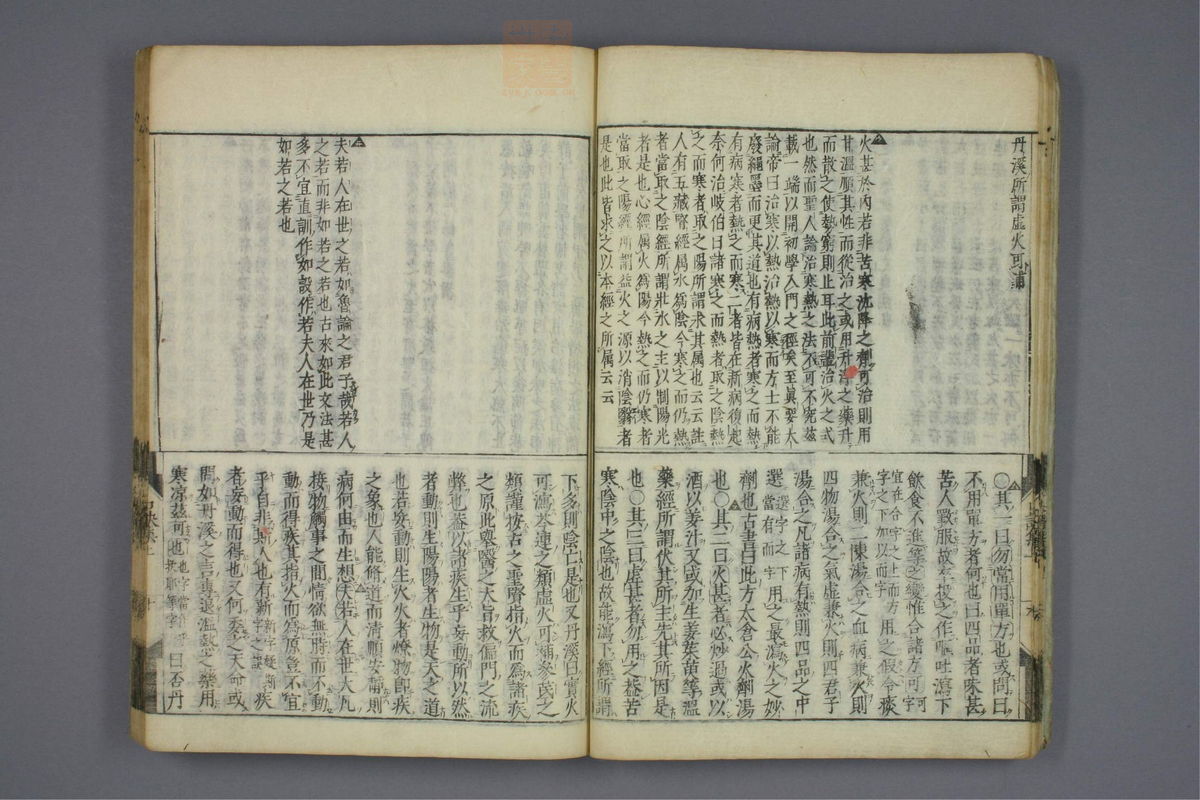 丹溪所謂虛火可補
火甚於內若非苦寒沈降之劑可治則用
甘溫順其性而從治之或用升浮之藥升
而散之使勢窮則止耳此前輩治火之式
也然而聖人論治寒熱之法不可不究茲
載一端以開初學入門之徑矣至眞要大
論帝曰治寒以熱治熱以寒而方士不能
廢繩墨而更其道也有病熱者寒之而熱
有病寒者熱之而寒二者皆在新病復起
奈何治岐伯曰諸寒之而熱者取之陰熱
之而寒者取之陽所謂求其属也云云註
人有五藏腎經属水為陰今寒之而仍熱
者當取之陰經所謂壯水之主以制陽光
者是也心經属火為陽今熱之而仍寒者
當取之陽經所謂益火之源以消陰翳者
是也此皆求之以本經之所属云云
○其一曰勿當用單方也或問曰
不用單方者何也曰四品者味甚
苦人歎服故卒投之作嘔吐瀉下
飲食不進等之變惟合諸方可可
宜在合字之上而方用之假令痰
字之下加以而字
兼火則二陳湯合之血病兼火則
四物湯合之氣虛兼火則四君子
湯合之凡諸病有熱則四品之中
選選字之下用之最瀉火之妙
當有而字
劑也古書曰此方太倉公火劑湯
也○其二曰火甚者必炒過或以
酒以姜汁又或加生姜茱萸等溫
藥經所謂伏其所主先其所因是
也○其三曰虛甚者勿用之蓋苦
寒陰中之陰也故能瀉下經所謂
夫若人在世之若如魯論之君子哉若人
之若而非如若之若也古來如此文法甚
多不宜直訓作如設作若夫人在世乃是
如若之若也
下多則陰亡是也又丹溪曰實火
可瀉芩連之類虛火可補參茋之
類謹按古之聖賢指火而為諸疾
之原此與醫之大旨救偏門之流
弊也蓋以諸疾生乎妄動所以然
者動則生陽陽者生物是天之道
也若妄動則生火火者燎物卽疾
之象也人能脩道而清順安補則
病何由而生想夫若人在世大凡
接物觸事之間情欲無時而不動
動而得疾其指火而為原豈不宜
乎自非新人也有新字之誤疾
者妄動而得也又何委之天命或
問如丹溪之言專退溫熱之藥用
寒凉茲可也曰否丹